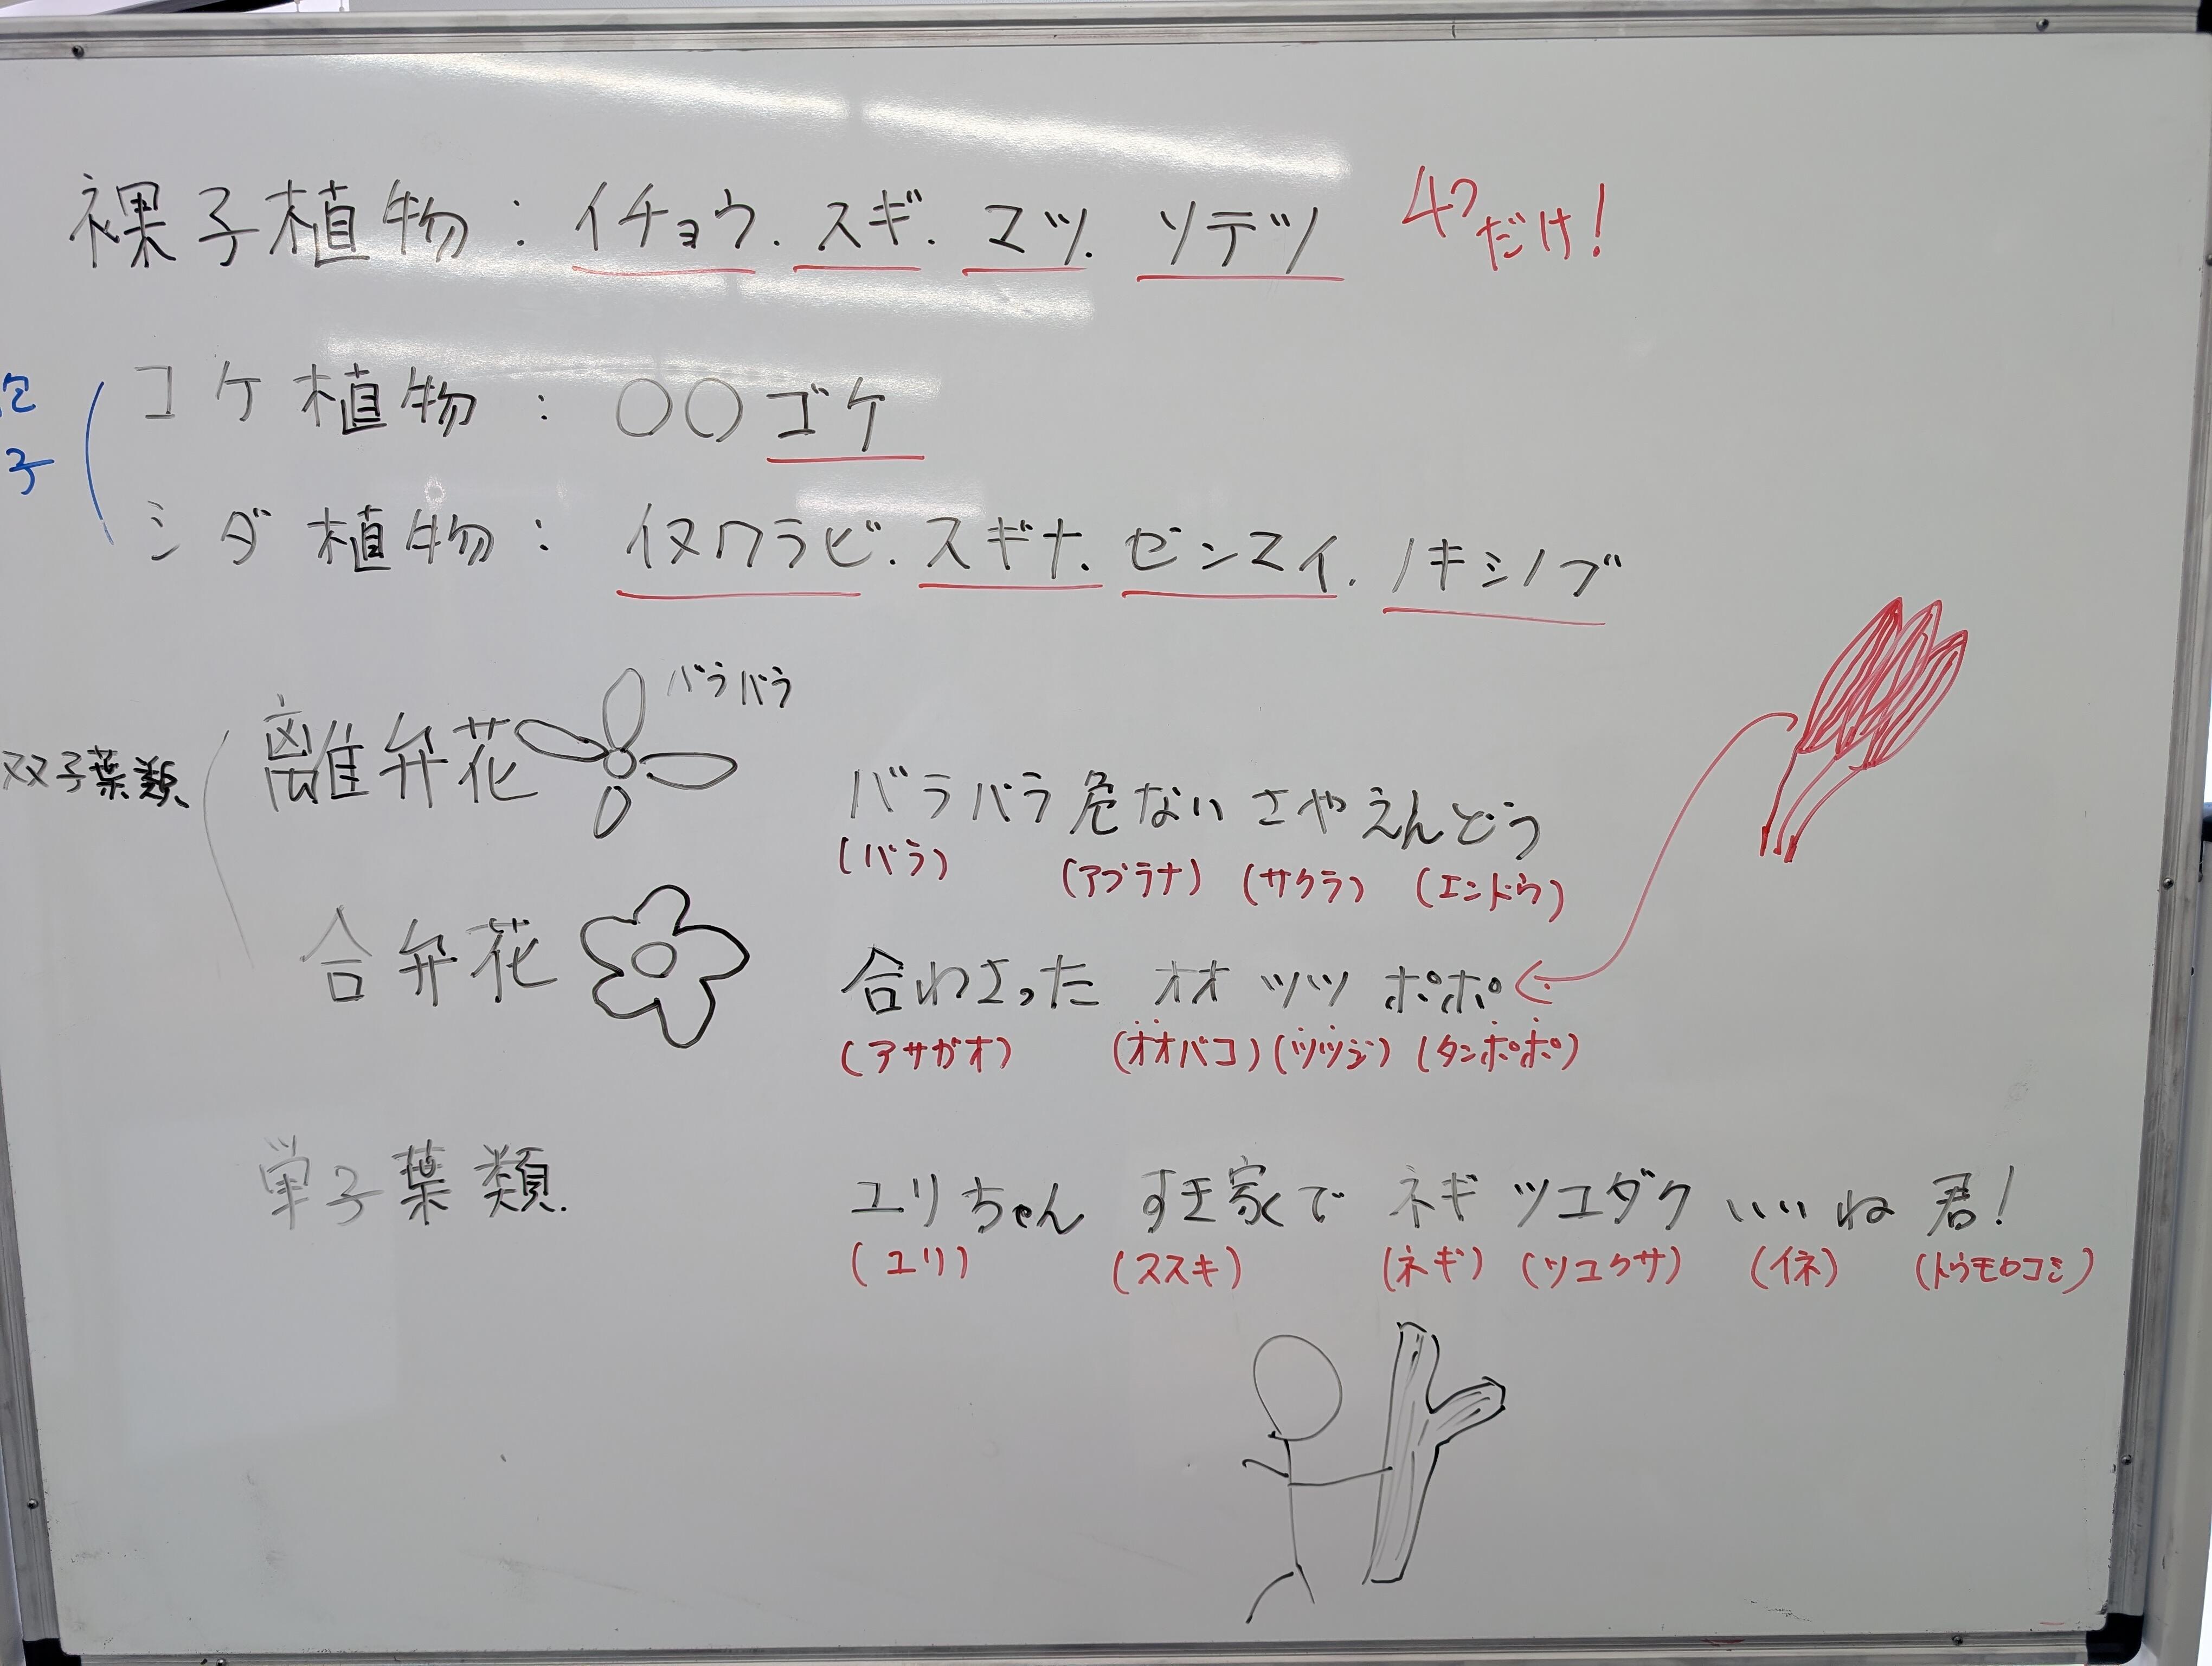 裸子植物：イチョウ．スギ．マツ．ソテツ 4つだけ！
コケ植物：〇〇ゴケ
子
シダ植物：イヌワラビ．スギナ．ゼンマイ．ノキシノブ
バラバラ
離弁花
双子葉類
バラバラ危ないさやえんどう
(バラ) (アブラナ) (サクラ) (エンドウ)
合弁花
合わさった オオ ツツ ポポ
(アサガオ) (オオバコ) (ツツジ) (タンポポ)
単子葉類．
ユリちゃん すき家で ネギ ツユダク いいね 君！
(ユリ) (ススキ) (ネギ) (ツユクサ) (イネ) (トウモロコシ)